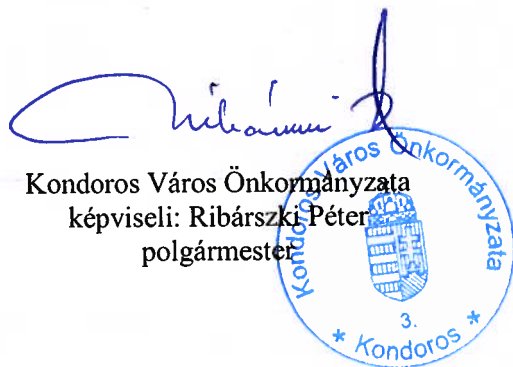 Kondoros Város Önkormányzata
képviseli: Ribárszki Péter
polgármester
Kondoros Város Önkormányzata
3.
* Kondoros *